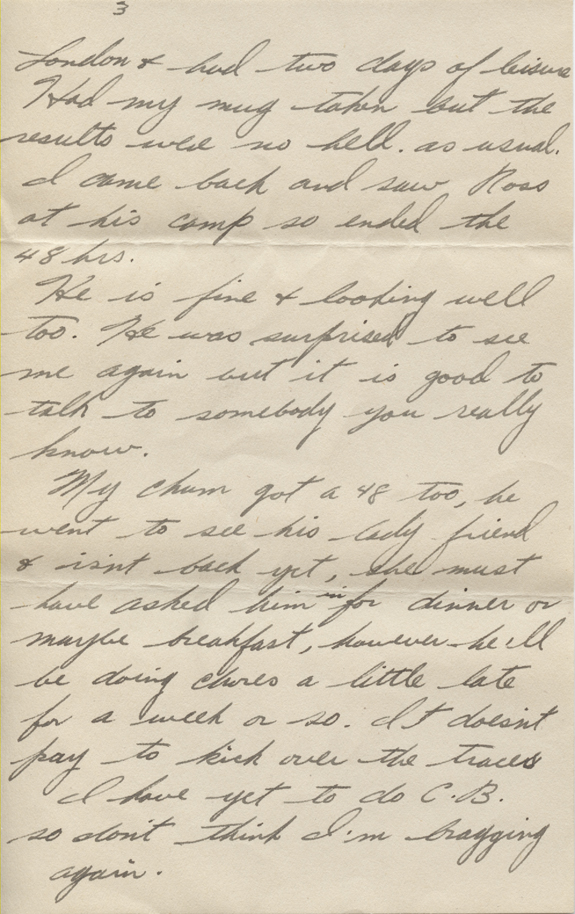 3
London & had two days of leisure
Had my mug taken but the
results were no hell. as usual.
I came back and saw Ross
at his camp so ended the
48 hrs.
He is fine & looking well
too. He was surprised to see
me again but it is good to
talk to somebody you really
know.
My chum got a 48 too, he
went to see his lady friend
& isnt back yet, she must
have asked him in for dinner or
maybe breakfast, however he'll
be doing chores a little late
for a week or so. It doesn't
pay to kick over the traces
I have yet to do C.B.
so don't think I'm bragging
again.